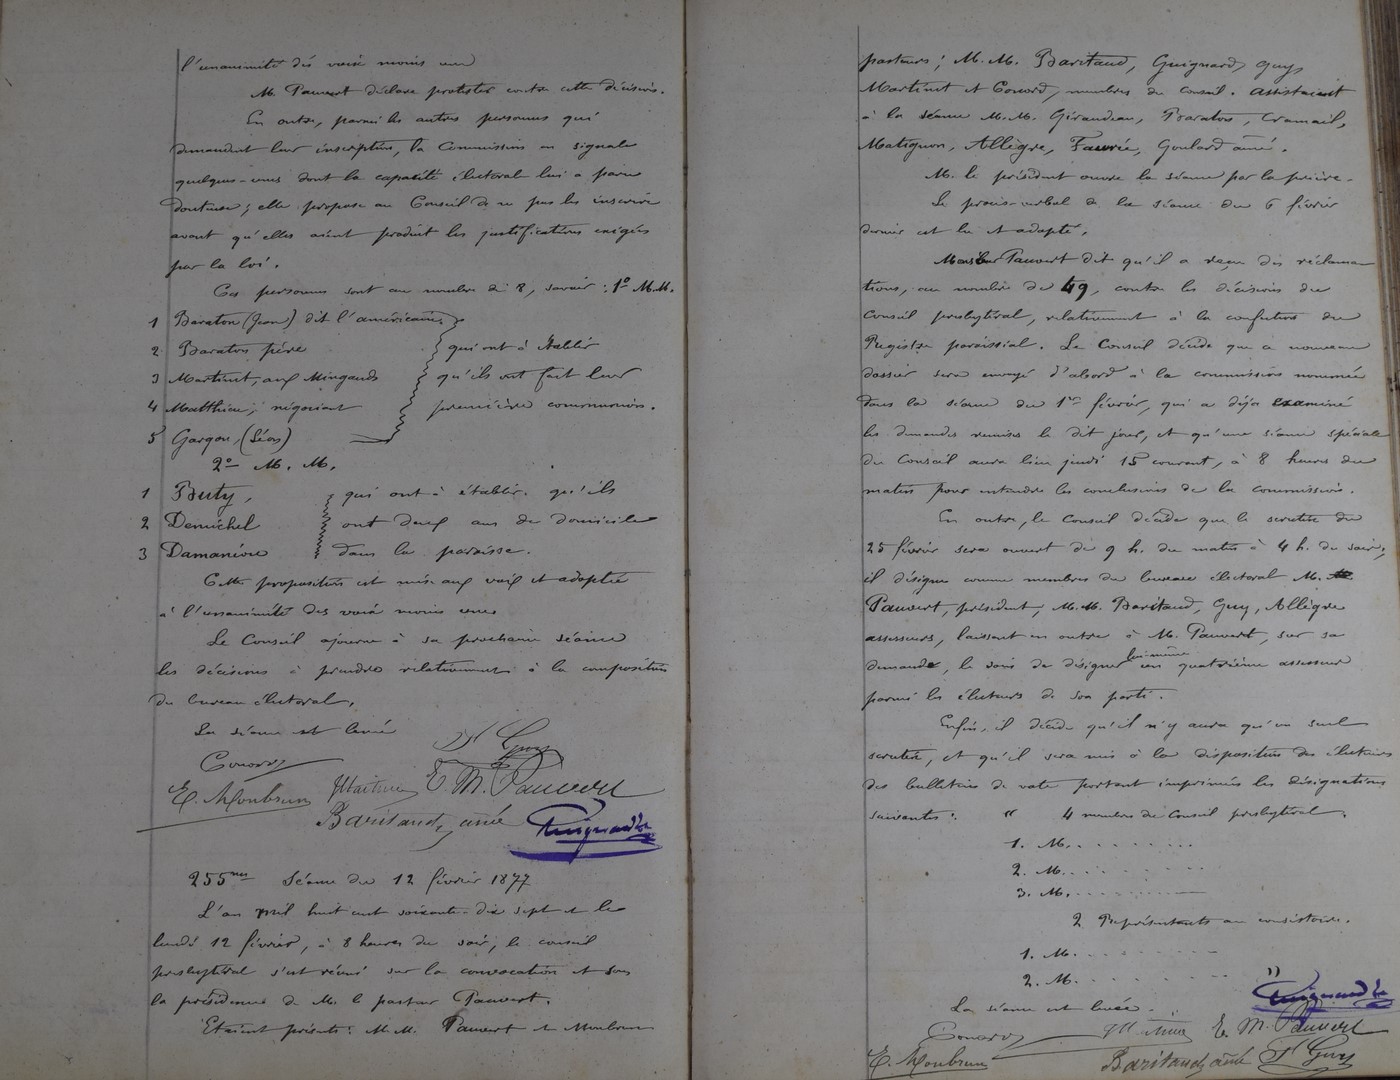 l'unanimité des voix moins une
M. Pauvert déclare protester contre cette décision.
En outre, parmi les autres personnes qui
demandent leur inscription, la Commission en signale
quelques-unes dont la capacité électoral lui a paru
douteuse; elle propose au Conseil de ne pas les inscrire
avant qu'elles aient produit les justifications exigées
par la loi.
Ces personnes sont au nombre de 8, savoir : 1º M.M.
1 Baraton (Jean) dit l'américain,
2 Baraton père qui ont à établir
3 Martinet, aux Mingauds qu'ils ont fait leur
4 Matthieu, négociant première communion.
5 Garçon, (Léon)
2º M. M.
1 Buty, qui ont à établir qu'ils
2 Demichel ont deux ans de domicile
3 Damanieu dans la paroisse.
Cette proposition est mise aux voix et adoptée
à l'unanimité des voix moins une
Le Conseil ajourne à sa prochaine séance
les décisions à prendre relativement à la composition
du bureau électoral.
La séance est levée
Conord P. Guy
E. Monbrun Martinet E. M. Pauvert
Baritaud aîné Guignard
255me Séance du 12 février 1877
L'an mil huit cent soixante-dix sept et le
lundi 12 février, à 8 heures du soir, le conseil
presbytéral s'est réuni sur la convocation et sous
la présidence de M. le pasteur Pauvert.
Etaient présents: M.M. Pauvert et Monbrun
pasteurs; M.M. Baritaud, Guignard, Guy,
Martinet et Conord, membres du Conseil. Assistaient
à la séance M.M. Giraudeau, Baraton, Cramail,
Matignon, Allègre, Faurie, Goulard aîné.
M. le président ouvre la séance par la prière.
Le procès-verbal de la séance du 6 février
dernier est lu et adopté.
Pauvert dit qu'il a reçu des réclama
tions, au nombre de 49, contre les décisions du
Conseil presbytéral, relativement à la confection du
Registre paroissial. Le Conseil décide que ce nouveau
dossier sera envoyé d'abord à la commission nommée
dans la séance du 1er février, qui a déjà examiné
les demandes remises le dit jour, et qu'une séance spéciale
du Conseil aura lieu jeudi 15 courant, à 8 heures du
matin pour entendre les conclusions de la commission.
En outre, le Conseil décide que le scrutin du
25 février sera ouvert de 9 h. du matin à 4 h. du soir;
il désigne comme membres du bureau électoral M.
Pauvert, président, M.M. Baritaud, Guy, Allègre
assesseurs, laissant en outre à M. Pauvert, sur sa
demande, le soin de désigner lui-même un quatrième assesseur
parmi les électeurs de son parti.
Enfin, il décide qu'il n'y aura qu'un seul
scrutin, et qu'il sera mis à la disposition des électeurs
des bulletins de vote portant imprimées les désignations
suivantes: " 4 membres du Conseil presbytéral.
1. M. . . . . . . .
2. M. . . . . . . .
3. M. . . . . . . .
2 Représentants au consistoire.
1. M. . . . . . . .
2. M. . . . . . . . "
La séance est levée. Guignard
Conord Martinet E. M. Pauvert
E. Monbrun Baritaud aîné P. Guy